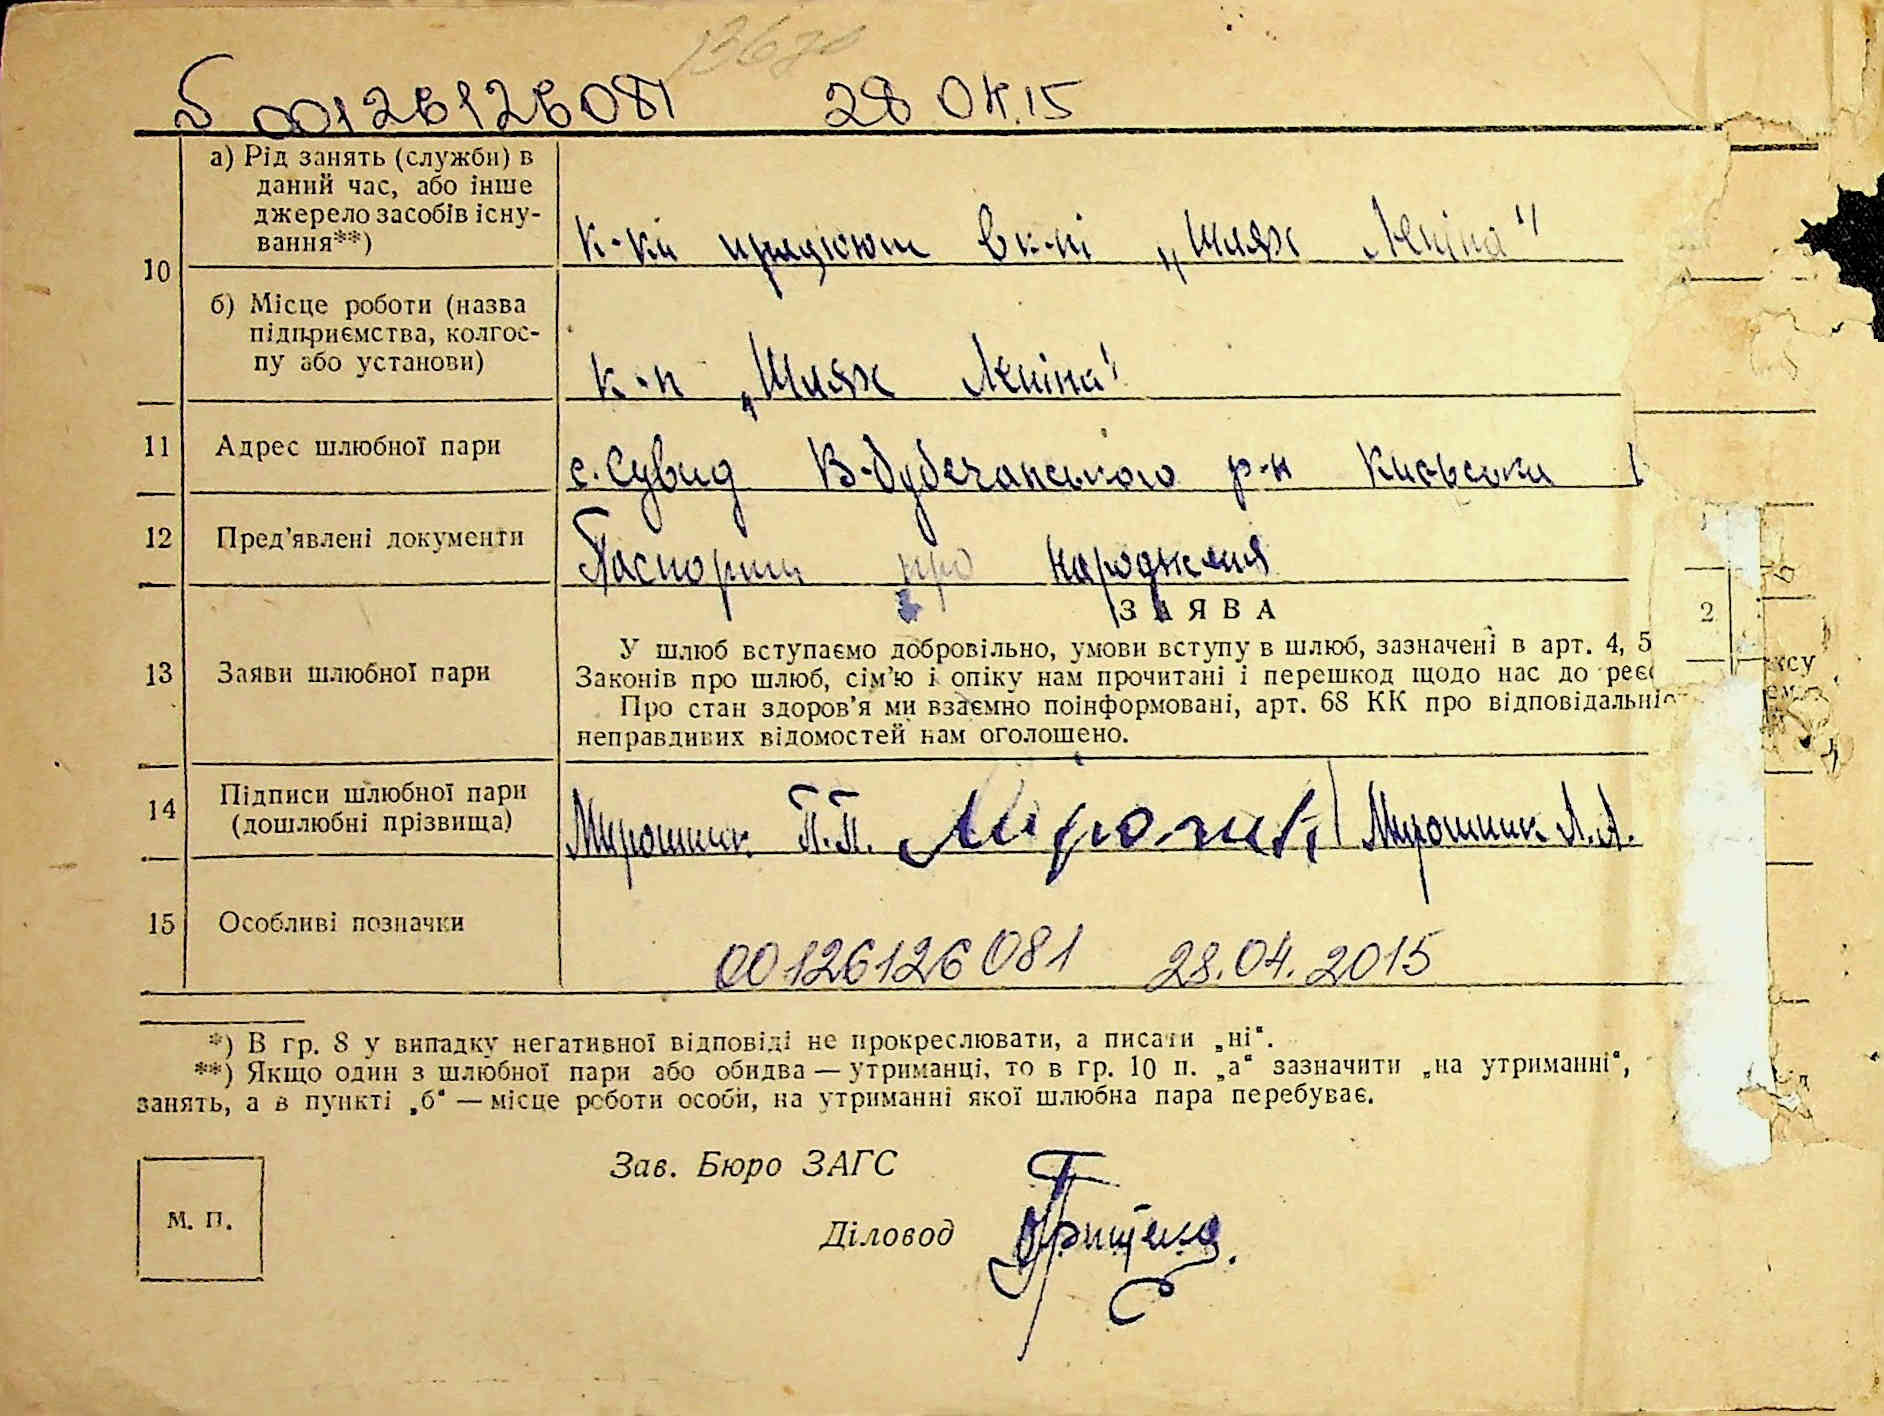 00126126081 28 ОК.15
а) Рід занять (служби) в
даний час, або інше
джерело засобів існу-
вання**)
к-ки працюют в к-пі „Шлях Леніна"
10
б) Місце роботи (назва
підприємства, колгос-
пу або установи)
к-п „Шлях Леніна"
11 Адрес шлюбної пари
с. Сувид В-Дубечанського р-н Київська
12 Пред'явлені документи
Паспорти про народження
ЗАЯВА
13 Заяви шлюбної пари
У шлюб вступаємо добровільно, умови вступу в шлюб, зазначені в арт. 4, 5
Законів про шлюб, сім'ю і опіку нам прочитані і перешкод щодо нас до реєс
Про стан здоров'я ми взаємно поінформовані, арт. 68 КК про відповідальніс
неправдивих відомостей нам оголошено.
2
14 Підписи шлюбної пари
(дошлюбні прізвища)
Мирошник П.П. Мирошник Л.А.
15 Особливі позначки
00126126081 28.04.2015
*) В гр. 8 у випадку негативної відповіді не прокреслювати, а писати „ні".
**) Якщо один з шлюбної пари або обидва — утриманці, то в гр. 10 п. „а" зазначити „на утриманні",
занять, а в пункті „б" — місце роботи особи, на утриманні якої шлюбна пара перебуває.
Зав. Бюро ЗАГС
М. П.
Діловод